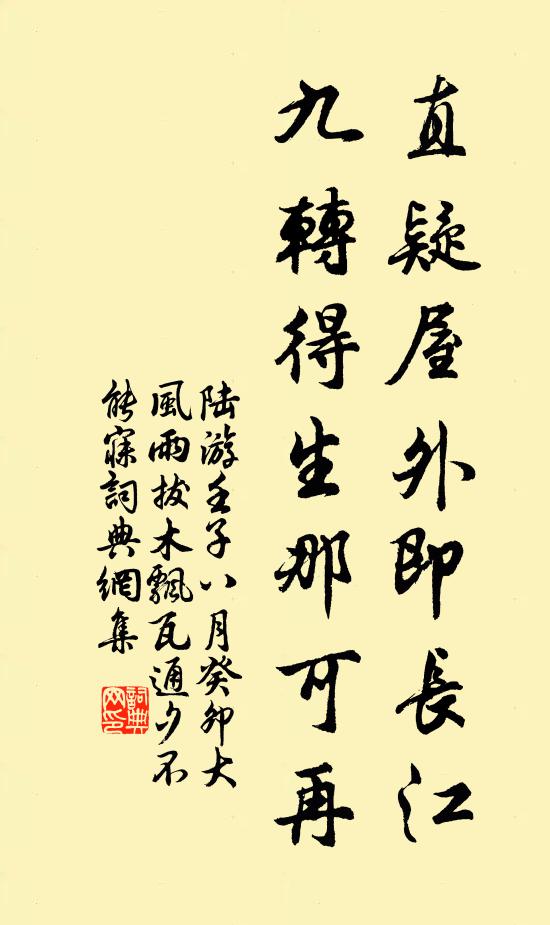 直疑屋外即長江
九轉得生那可再
陆游壬子八月癸卯大
風雨拔木飄瓦通夕不
能寐詞典網集
詞典
网印